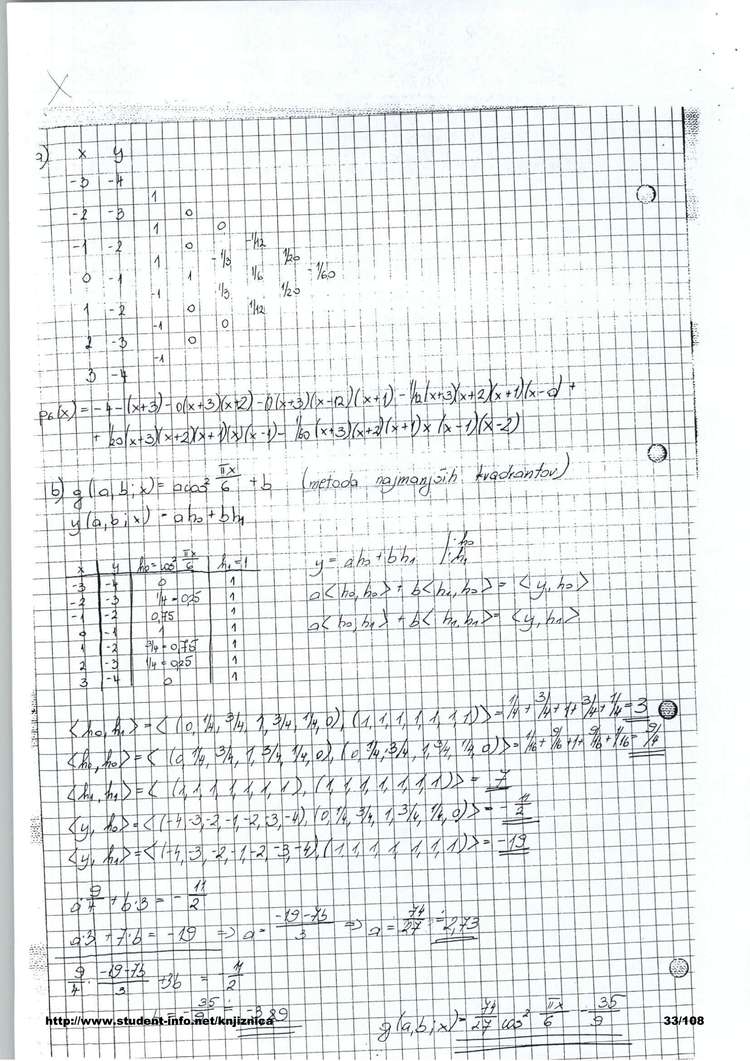 a) x y
-3 -4
1
-2 -3 0
1 0
-1 -2 0 -1/12
1 -1/3 1/20
0 -1 1 1/6 -1/60
-1 1/3 1/20
1 -2 0 1/12
-1 0
2 -3 0
-1
3 -4
p₆(x) = -4 - (x+3) - 0(x+3)(x+2) - 0(x+3)(x-12)(x+1) - 1/12(x+3)(x+2)(x+1)(x-0) +
+ 1/20(x+3)(x+2)(x+1)(x)(x-1) - 1/60(x+3)(x+2)(x+1)x(x-1)(x-2)
b) g(a,b;x) = a cos² πx/6 + b (metoda najmanjših kvadrantov)
y(a,b;x) = ah₀ + bh₁
x y h₀=cos² πx/6 h₁=1
-3 -4 0 1
-2 -3 1/4=0,25 1
-1 -2 0,75 1
0 -1 1 1
1 -2 3/4=0,75 1
2 -3 1/4=0,25 1
3 -4 0 1
y = ah₀ + bh₁ |·h₀
|·h₁
a<h₀,h₀> + b<h₁,h₀> = <y,h₀>
a<h₀,h₁> + b<h₁,h₁> = <y,h₁>
<h₀,h₁> = <(0,1/4,3/4,1,3/4,1/4,0),(1,1,1,1,1,1,1)> = 1/4+3/4+1+3/4+1/4 = 3
<h₀,h₀> = <(0,1/4,3/4,1,3/4,1/4,0),(0,1/4,3/4,1,3/4,1/4,0)> = 1/16+9/16+1+9/16+1/16 = 9/4
<h₁,h₁> = <(1,1,1,1,1,1,1),(1,1,1,1,1,1,1)> = 7
<y,h₀> = <(-4,-3,-2,-1,-2,-3,-4),(0,1/4,3/4,1,3/4,1/4,0)> = -11/2
<y,h₁> = <(-4,-3,-2,-1,-2,-3,-4),(1,1,1,1,1,1,1)> = -19
a·9/4 + b·3 = -11/2
a·3 + 7·b = -19 => a = (-19-7b)/3 => a = 74/27 ≐ 2,73
9/4 · (-19-7b)/3 + 3b = -11/2
= -35/9 ≐ -3,89
g(a,b;x) = 74/27 cos² πx/6 - 35/9
http://www.student-info.net/knjiznica
33/108